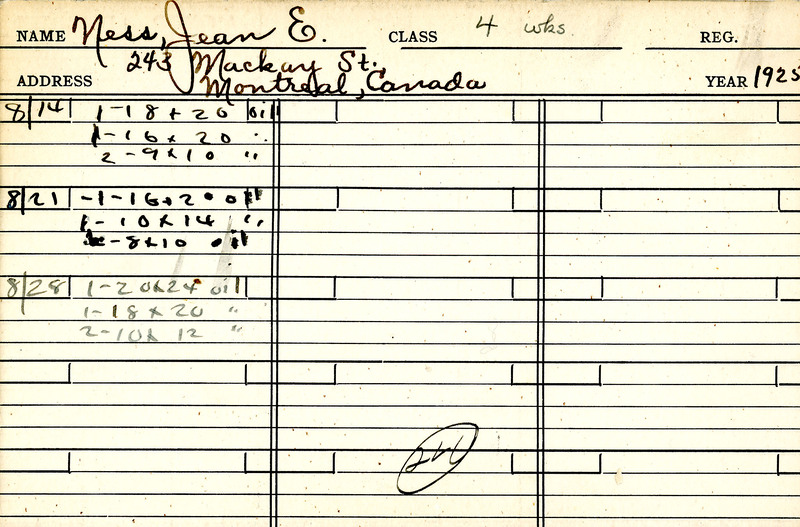 NAME Ness, Jean E. CLASS 4 wks REG.
243 Mackay St.,
ADDRESS Montreal, Canada YEAR 1925
8/14 1-18x20 oil
1-16x20 "
2-9x10 "
8/21 -1-16x20 oil
1-10x14 "
8x10 oil
8/28 1-20x24 oil
1-18x20 "
2-10x12 "